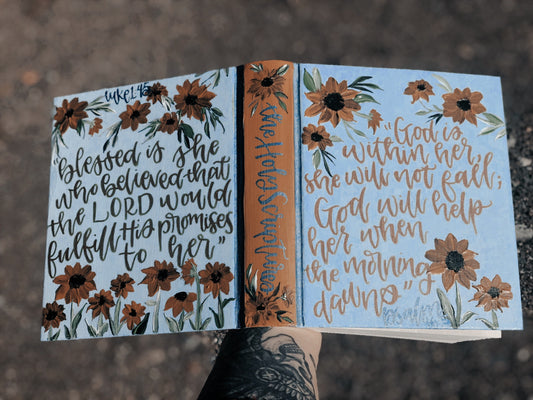 Luke 1:45
"Blessed is she
who believed that
the LORD would
fulfill His promises
to her"
the Holy Scriptures
"God is
within her,
she will not fall;
God will help
her when
the morning
dawns"
psalm